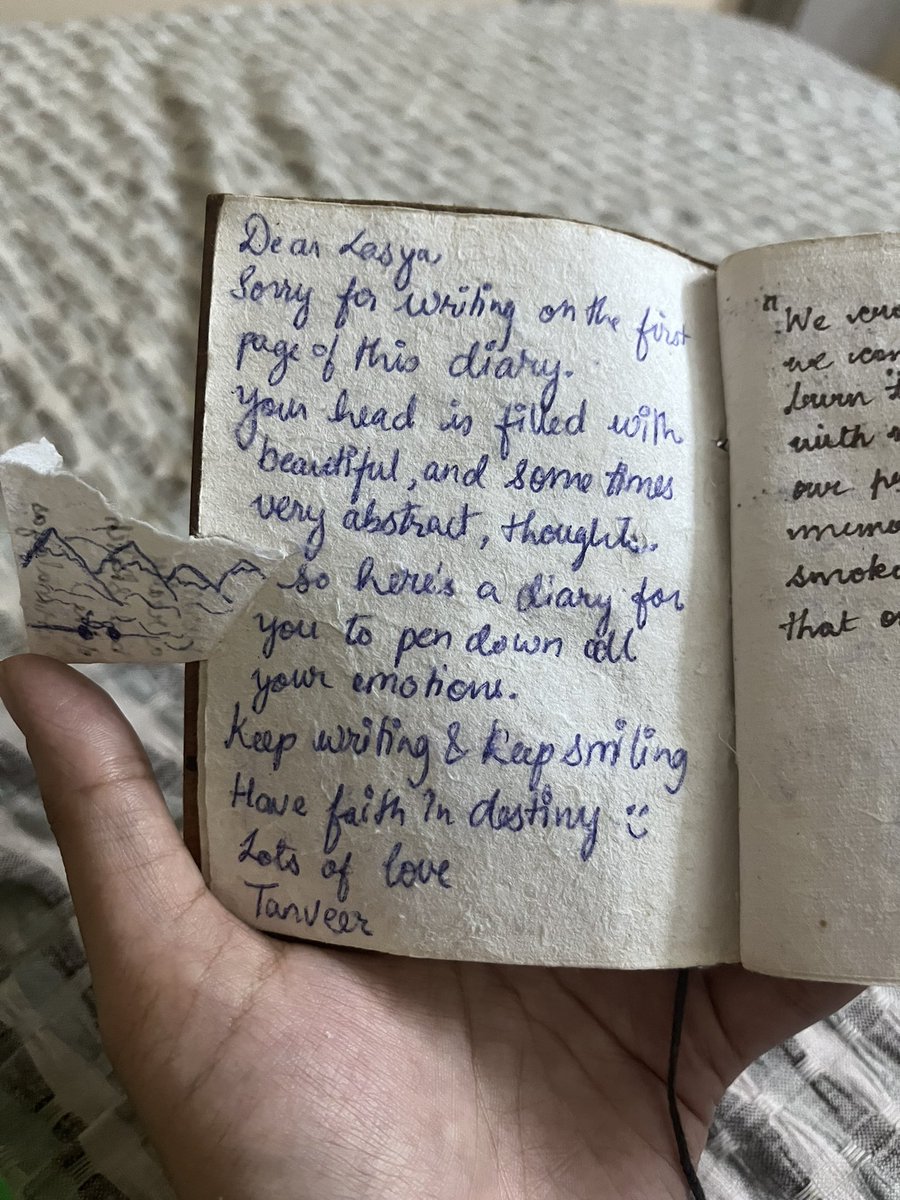 Dear Lasya,
Sorry for writing on the first
page of this diary.
Your head is filled with
beautiful, and some times
very abstract, thoughts.
So here's a diary for
you to pen down all
your emotions.
Keep writing & keep smiling
Have faith in destiny :)
Lots of love
Tanveer
"We
we
burn
with
our
smoke
that